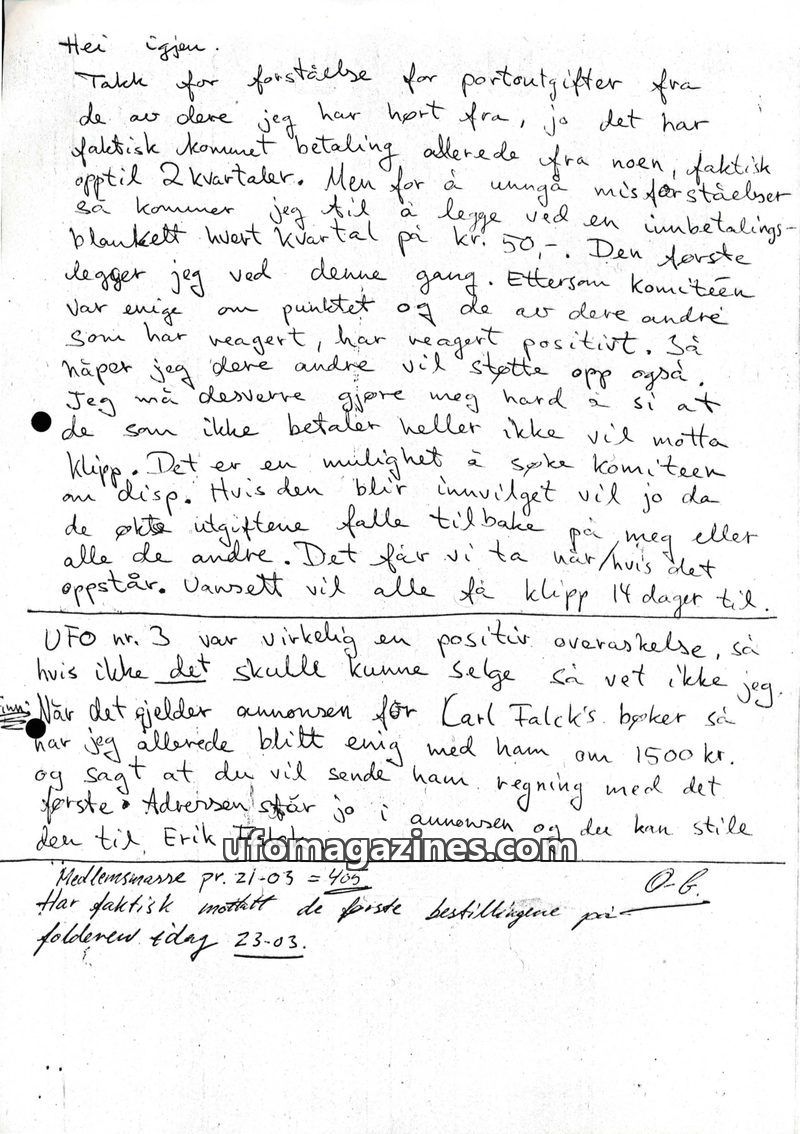 Hei igjen.
Takk for forståelse for portoutgifter fra
de av dere jeg har hørt fra, jo det har
faktisk kommet betaling allerede fra noen, faktisk
opptil 2 kvartaler. Men for å unngå misforståelser
så kommer jeg til å legge ved en innbetalings-
blankett hvert kvartal på kr. 50,-. Den første
legger jeg ved denne gang. Ettersom komitéen
var enige om punktet og de av dere andre
som har reagert, har reagert positivt. Så
håper jeg dere andre vil støtte opp også.
Jeg må desverre gjøre meg hard å si at
de som ikke betaler heller ikke vil motta
klipp. Det er en mulighet å søke komiteen
om disp. Hvis den blir innvilget vil jo da
de økte utgiftene falle tilbake på meg eller
alle de andre. Det får vi ta når/hvis det
oppstår. Uansett vil alle få klipp 14 dager til.
UFO nr. 3 var virkelig en positiv overaskelse, så
hvis ikke det skulle kunne selge så vet ikke jeg.
inn:
Når det gjelder annonsen for Carl Falck's bøker så
har jeg allerede blitt enig med ham om 1500 kr.
og sagt at du vil sende ham regning med det
første. Adressen står jo i annonsen og du kan stile
den til Erik
ufomagazines.com
Medlemsmasse pr. 21-03 = 405
O-G.
Har faktisk mottatt de første bestillingene på
folderen idag 23-03.